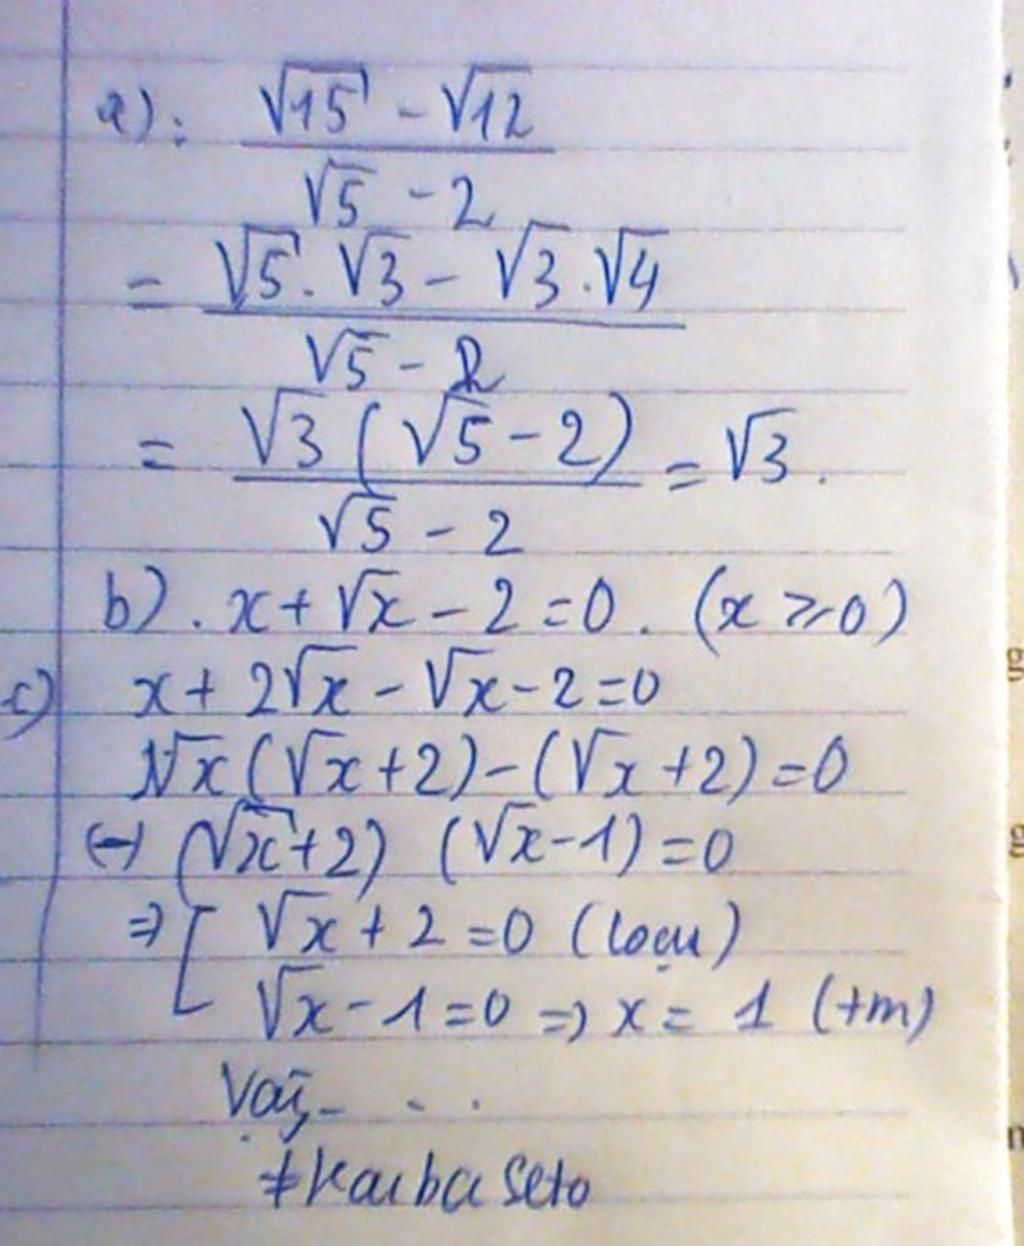 a): \frac{\sqrt{15} - \sqrt{12}}{\sqrt{5} - 2}
= \frac{\sqrt{5} . \sqrt{3} - \sqrt{3} . \sqrt{4}}{\sqrt{5} - 2}
= \frac{\sqrt{3} (\sqrt{5} - 2)}{\sqrt{5} - 2} = \sqrt{3} .
b) . x + √x - 2 = 0 . (x ≥ 0)
c) x + 2√x - √x - 2 = 0
√x (√x + 2) - (√x + 2) = 0
(-) (√x + 2) (√x - 1) = 0
⇒ [ √x + 2 = 0 (loại)
√x - 1 = 0 ⇒ x = 1 (tm)
Vậy - . .
#Kaiba Seto